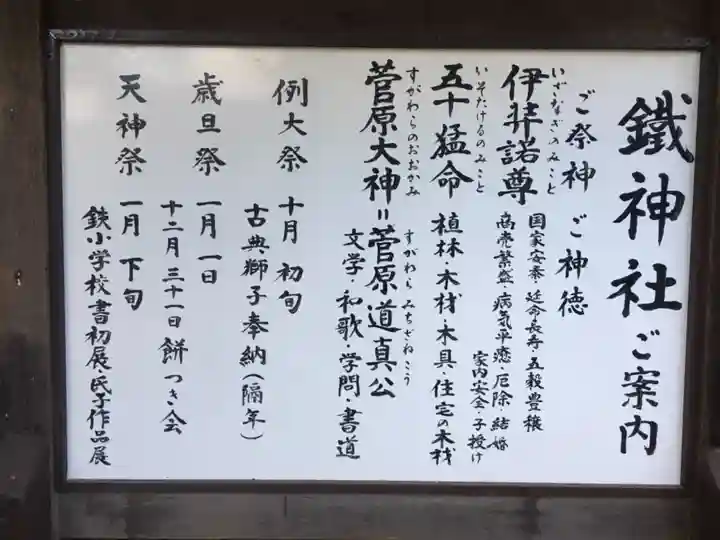 鐵神社ご案内
ご祭神 ご神徳
いざなぎのみこと
伊弉諾尊 国家安泰・延命長寿・五穀豊穣
商売繁盛・病気平癒・厄除・結婚
家内安全・子授け
いそたけるのみこと
五十猛命 植林・木材・木具・住宅の木材
すがわらのおおかみ すがわらみちざねこう
菅原大神=菅原道真公
文学・和歌・学問・書道
例大祭 十月 初旬
古典獅子奉納(隔年)
歳旦祭 一月一日
十二月三十一日餅つき会
天神祭 一月 下旬
鉄小学校書初展・氏子作品展